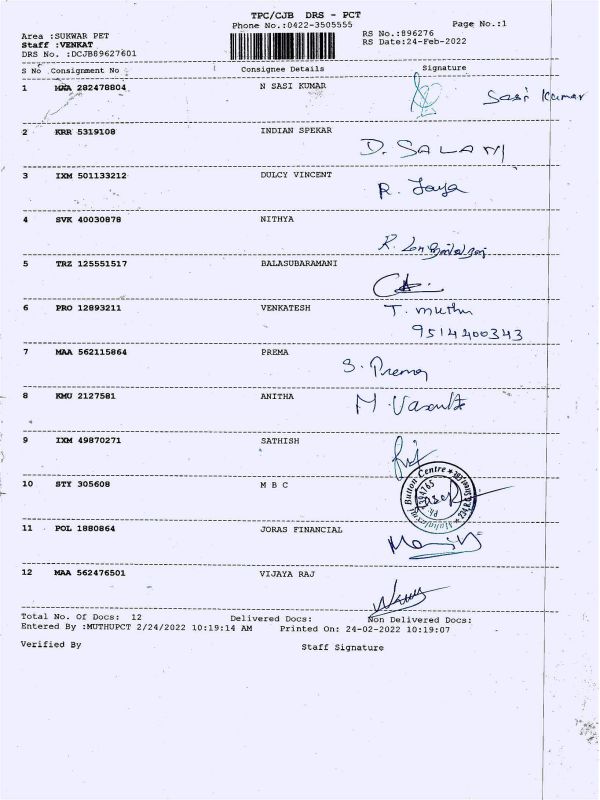 TPC/CJB DRS - PCT
Phone No.:0422-3505555
Page No.:1
Area :SUKWAR PET
RS No.:896276
Staff :VENKAT
RS Date:24-Feb-2022
DRS No. :DCJB89627601
S No Consignment No Consignee Details Signature
1 MAA 282478804 N SASI KUMAR
Sasi Kumar
2 KRR 5319108 INDIAN SPEKAR
D. SALAM
3 IXM 501133212 DULCY VINCENT
R. Jaya
4 SVK 40030878 NITHYA
R.
5 TRZ 125551517 BALASUBARAMANI
6 PRO 12893211 VENKATESH T. Muthu
9514400343
7 MAA 562115864 PREMA
S. Prema
8 KMU 2127581 ANITHA
M. Vasantha
9 IXM 49870271 SATHISH
10 STY 305608 M B C
Button Centre
11 POL 1880864 JORAS FINANCIAL
12 MAA 562476501 VIJAYA RAJ
Total No. Of Docs: 12 Delivered Docs: Non Delivered Docs:
Entered By :MUTHUPCT 2/24/2022 10:19:14 AM Printed On: 24-02-2022 10:19:07
Verified By Staff Signature